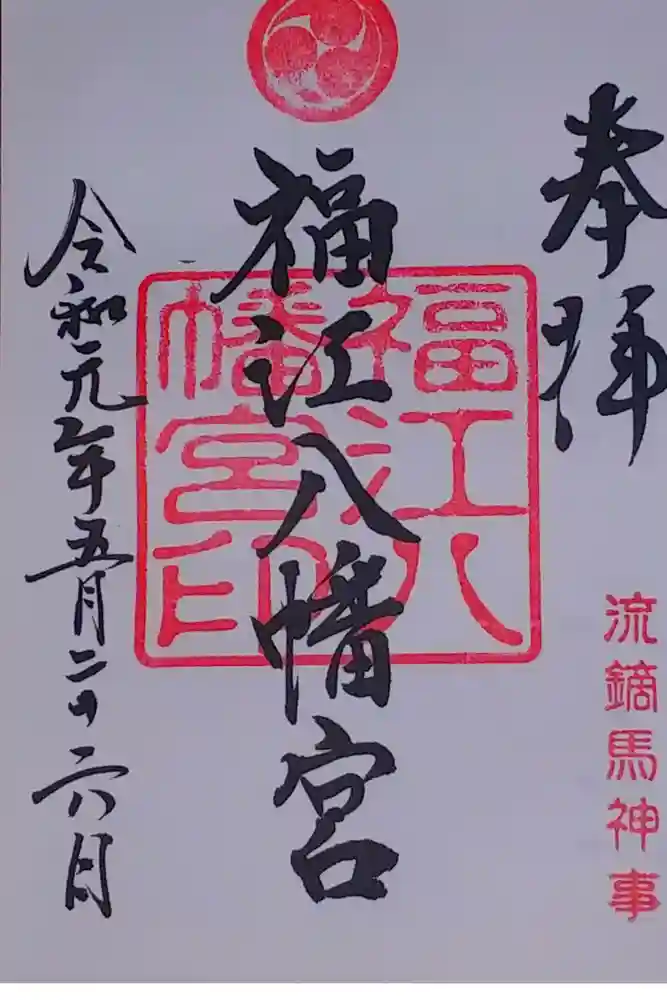 奉拝
流鏑馬神事
福江八幡宮
福江八幡宮印
令和元年五月二十六日